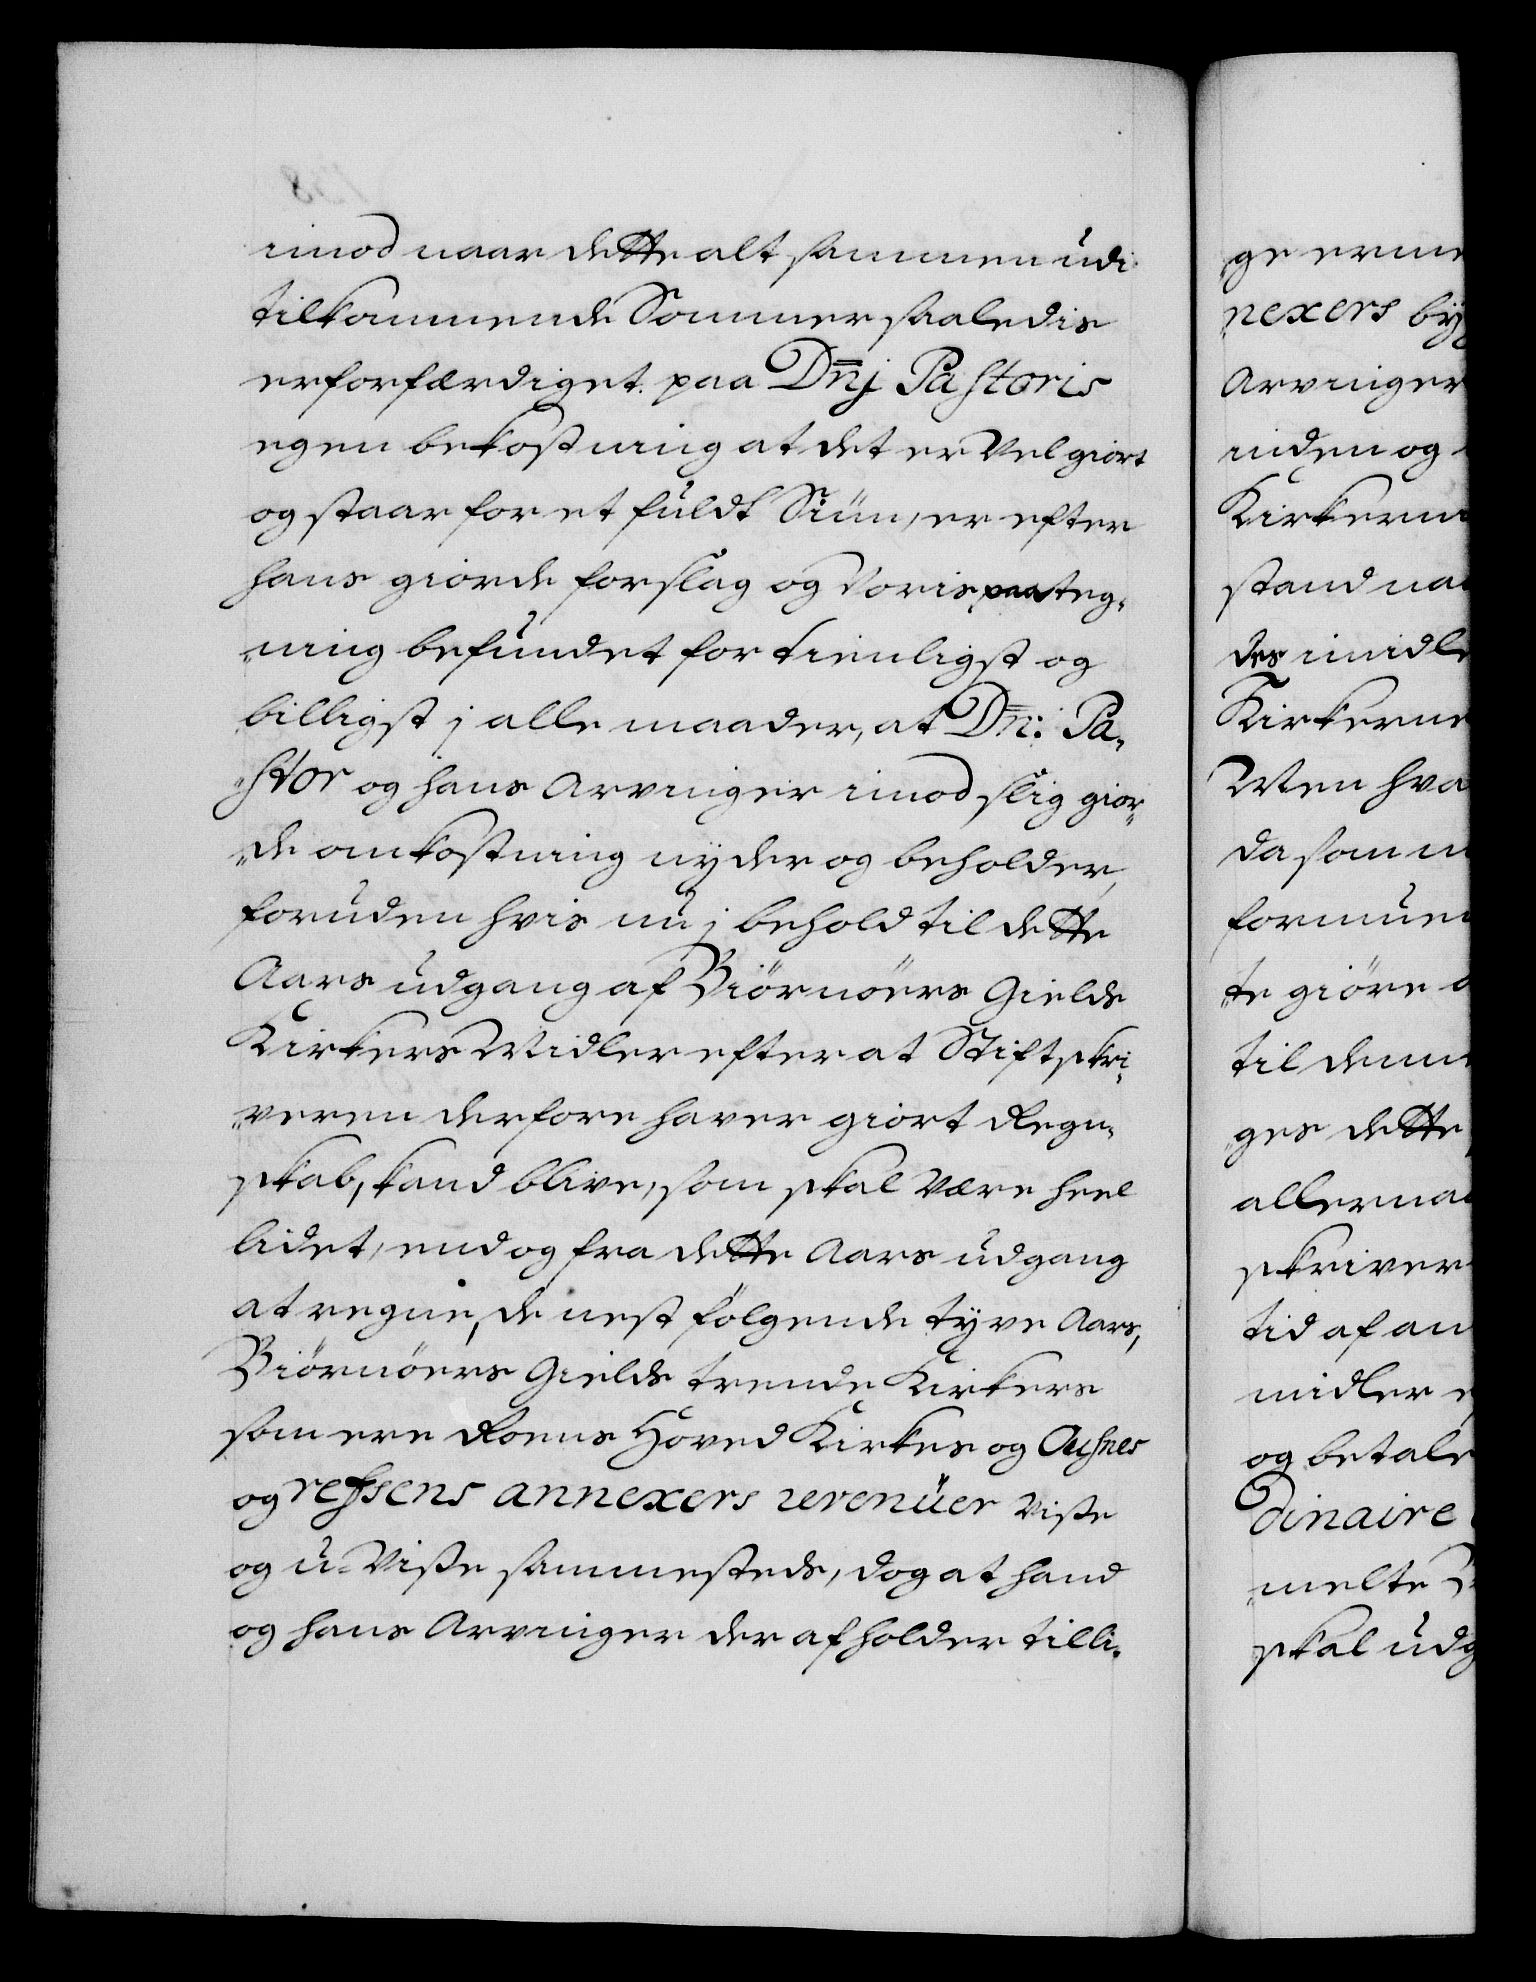 imod naar dette alt sammen udi
tilkommende Sommer saaledis
er forfærdiget paa Dnj Pastoris
egen bekostning at det er Vel giort
og staar for et fuldt Siün, er efter
hans giorde forslag og Voris paateg„
„ning befundet for tienligst og
billigst j alle maader, at Dn: Pa„
„stor og hans Arvinger imod slig gior„
„de omkostning nyder og beholder,
foruden hvis nu j behold til dette
Aars udgang af Biörnöers Gields
Kirkers Midler efter at Stiftskri„
„veren derfore haver giort Regn„
skab, kand blive, som skal være heel
lidet, end og fra dette Aars udgang
at regne, de nest følgende tyve Aars,
Biörnöers Gields trende Kirkers
som ere Roens Hoved Kirkes og Aufnes
og refsens annexers revenüer Visse
og u-Visse sammesteds, dog at hand
og hans Arvinger der af holder tilli„
ge erme
nexers byg
Arvinger
inden og
Kirkerne
stand na
des imidle
Kirkerne
Men hva
da som
formue
„te giöre
til denne
„ges dette
allerna
skriver
tid af an
midler
og betale
dinaire
„melte
skal udg